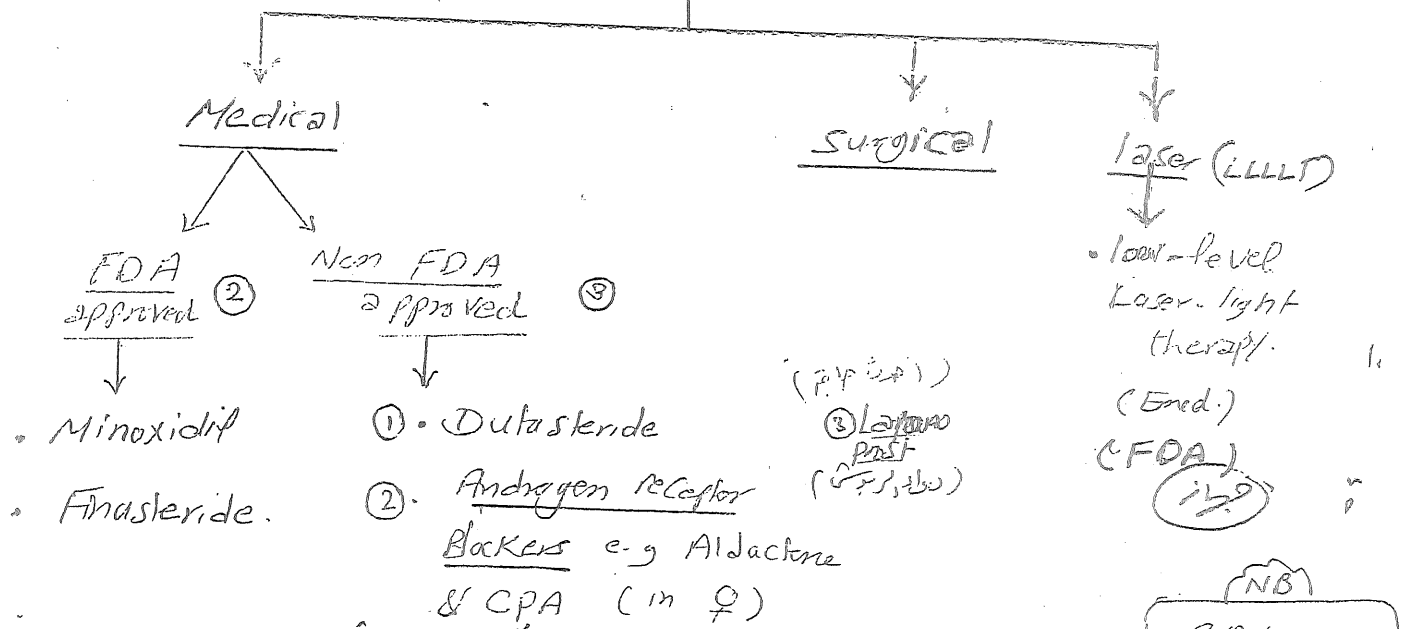 Medical
Surgical
laser (LLLT)
FDA
approved ②
Non FDA
approved ③
• low-level
Laser-light
therapy.
(FDA)
جهاز
• Minoxidil
• Finasteride.
① • Dutasteride
② • Androgen receptor
Blockers e.g Aldactone
& CPA (in ♀)
③ Latano
prost
NB